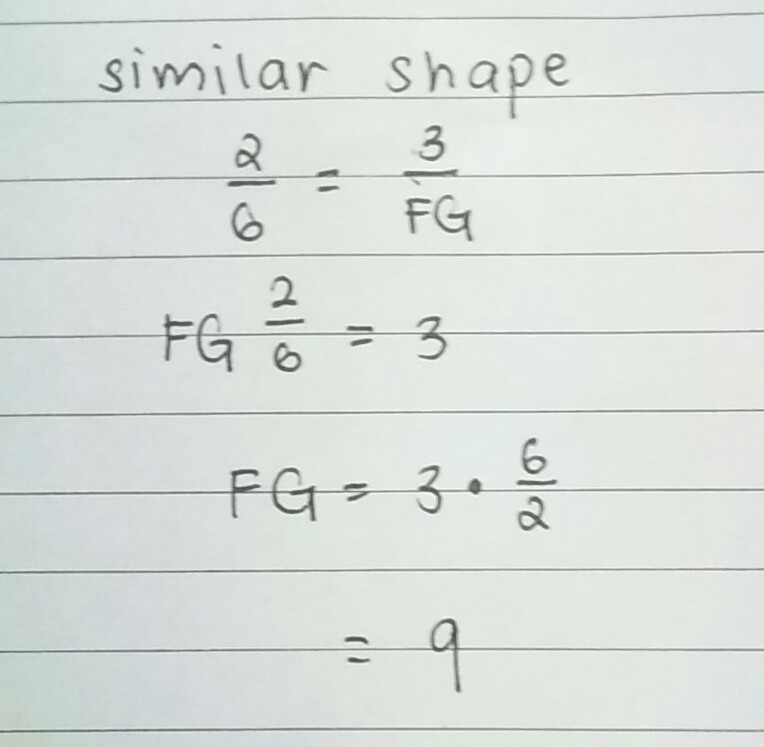 similar shape
2/6 = 3/FG
FG 2/6 = 3
FG = 3 · 6/2
= 9